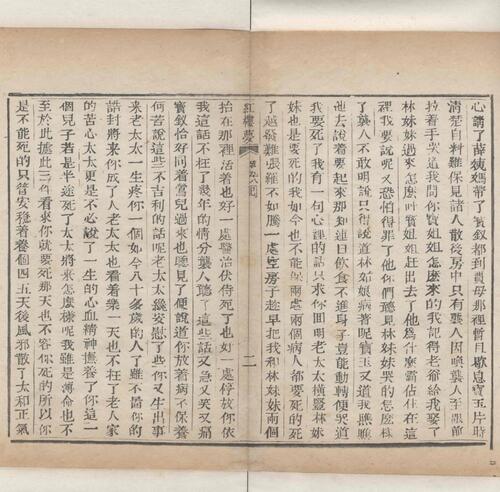 心請了薛姨媽帶了寶釵都到賈母那裡暫且歇息寶玉片時
清楚自料難保見諸人散後房中只有襲人因喚襲人至跟前
拉着手哭道我問你寶姐姐怎麼來的我記得老爺給我娶了
林妹妹過來怎麼叫寶姐姐赶出去了他爲什麼霸佔住在這
裡我要說呢又恐怕得罪了他你們聽見林妹妹哭的怎麼樣
了襲人不敢明說只得說道林姑娘病著呢寶玉又道我瞧瞧
他去說着要起來那知連日飲食不進身子豈能動轉便哭道
我要死了我有一句心裡的話只求你回明老太太橫豎林妹
妹也是要死的我如今也不能保兩處兩個病人都要死的死
了越發難張羅不如騰一處空房子趁早把我和林妹妹兩個
紅樓夢
抬在那裡活着也好一處醫治伏侍死了也好一處停放你依
我這話不枉了幾年的情分襲人聽了這些話又急又笑又痛
寶釵恰好同着鶯兒過來也聽見了便說道你放着病不保養
何苦說這些不吉利的話呢老太太纔安慰了些你又生出事
來老太太一生疼你一個如今八十多歲的人了雖不圖你的
誥封將來你成了人老太太也看着樂一天也不枉了老人家
的苦心太太更是不必說了一生的心血精神撫養了你這一
個兒子若是半途死了太太將來怎麼樣呢我雖是薄命也不
至於此據此三件看來你就要死那天也不容你死的所以你
是不能死的只管安穩着養個四五天後風邪散了太和正氣